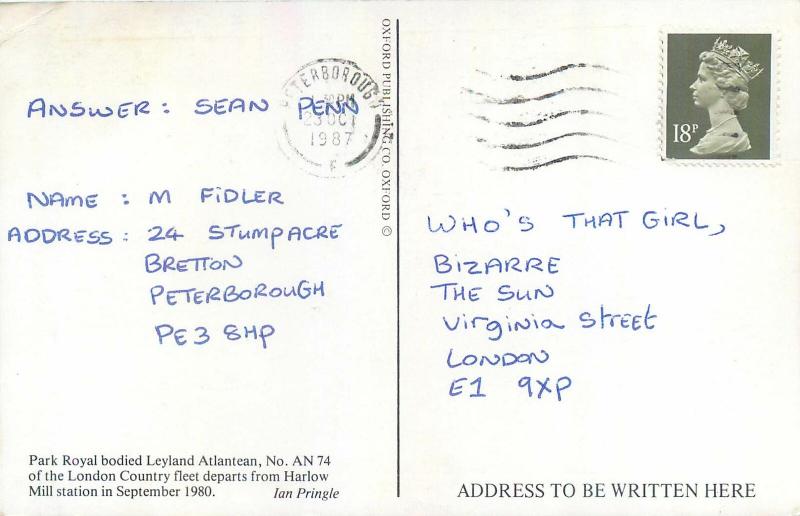 ANSWER: SEAN PENN
NAME : M FIDLER
ADDRESS: 24 STUMPACRE
BRETTON
PETERBOROUGH
PE3 8HP
Park Royal bodied Leyland Atlantean, No. AN 74
of the London Country fleet departs from Harlow
Mill station in September 1980. Ian Pringle
OXFORD PUBLISHING CO. OXFORD ©
PETERBOROUGH
OCT
1987
18P
WHO'S THAT GIRL,
BIZARRE
THE SUN
Virginia Street
LONDON
E1 9XP
ADDRESS TO BE WRITTEN HERE